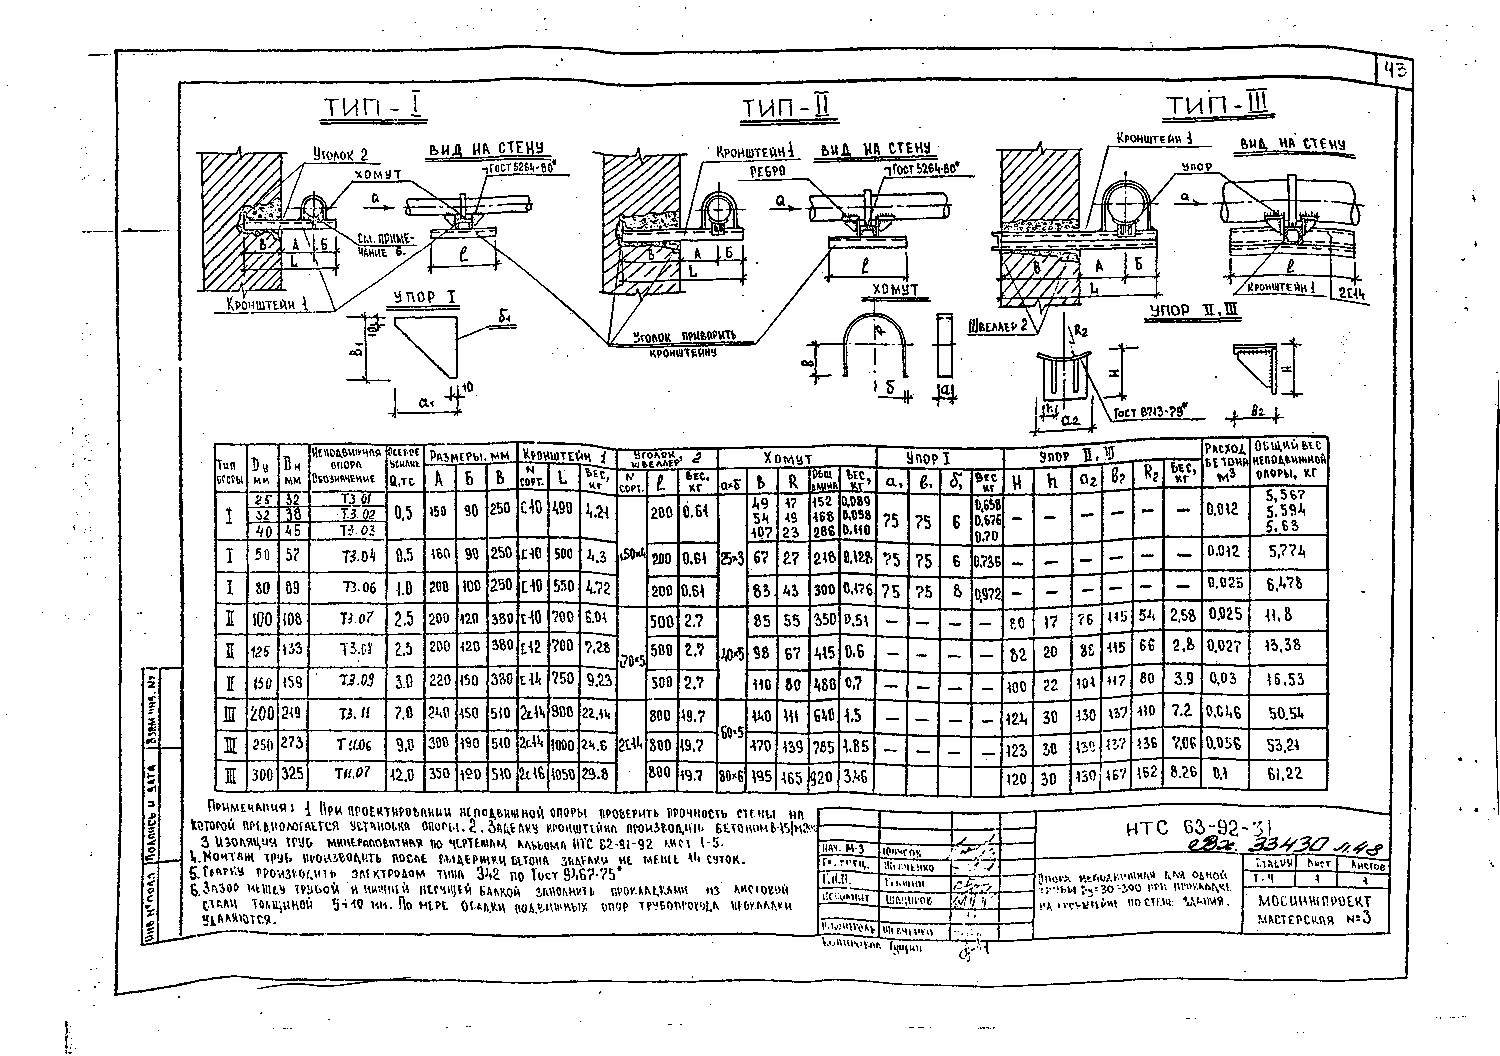 43
ТИП - I
ТИП - II
ТИП - III
Уголок 2
ВИД НА СТЕНУ
ГОСТ 5264-80*
ХОМУТ
а
СМ. ПРИМЕ-
ЧАНИЕ 6.
В А Б
L
ℓ
КРОНШТЕЙН 1
УПОР I
б₁
10
В₁
10
а₁
КРОНШТЕЙН 1
ВИД НА СТЕНУ
РЕБРО
ГОСТ 5264-80*
а
В А Б
L
ℓ
ХОМУТ
Уголок приварить
кронштейну
В
R
б
а
КРОНШТЕЙН 1
ВИД НА СТЕНУ
УПОР
а
В А Б
L
ℓ
КРОНШТЕЙН 1
2С14
Швеллер 2
УПОР II, III
R₂
H
h
а₂
ГОСТ 8713-79*
H
В₂
Тип опоры | Dу мм | Dн мм | Неподвижная опора Обозначение | Осевое усилие Q, тс | Размеры, мм А Б В | Кронштейн 1 N сорт. L Вес, кг | Уголок, швеллер, 2 N сорт. ℓ Вес, кг | Хомут а×б В R Общ. длина Вес, кг | Упор I а₁ в₁ б₁ Вес кг | Упор II, III H h а₂ в₂ R₂ Вес, кг | Расход бетона м3 | Общий вес неподвижной опоры, кг
I 25 32 Т3.01 0,5 150 90 250 С10 490 4.21 L50×4 200 0.61 25×3 49 17 152 0,089 75 75 6 0,658 — — — — — — 0.012 5,567
32 38 Т3.02 54 19 168 0,098 0,676 5.594
40 45 Т3.03 107 23 286 0.110 0.70 5.63
I 50 57 Т3.04 0.5 160 90 250 С10 500 4.3 200 0.61 67 27 218 0,128 75 75 6 0,736 — — — — — — 0.012 5,774
I 80 89 Т3.06 1.0 200 100 250 С10 550 4.72 200 0.61 83 43 300 0,176 75 75 8 0,972 — — — — — — 0.025 6,478
II 100 108 Т3.07 2.5 200 120 380 С10 700 6.01 L70×5 500 2.7 40×5 85 55 350 0,51 — — — — 80 17 76 115 54 2,58 0,025 11,8
II 125 133 Т3.08 2.5 200 120 380 С12 700 7.28 500 2.7 98 67 415 0.6 — — — — 82 20 86 115 66 2.8 0,027 13,38
II 150 159 Т3.09 3.0 220 150 380 С14 750 9.23 500 2.7 110 80 486 0,7 — — — — 100 22 101 117 80 3.9 0,03 16.53
III 200 219 Т3.11 7.0 240 150 510 2С14 900 22.14 2С14 800 19.7 60×5 140 111 640 1.5 — — — — 124 30 130 137 110 7.2 0,046 50.54
III 250 273 Т11.06 9,0 300 190 510 2С14 1000 24.6 800 19.7 170 139 785 1.85 — — — — 123 30 130 137 136 7,06 0,056 53,21
III 300 325 Т11.07 12,0 350 190 510 2С16 1050 29.8 800 19.7 80×6 195 165 920 3.46 120 30 130 167 162 8.26 0,1 61,22
Примечания: 1 При проектировании неподвижной опоры проверить прочность стены на
которой предпологается установка опоры. 2. Заделку кронштейна производить бетоном В-15
3 Изоляция труб минераловатная по чертежам альбома НТС 62-91-92 лист 1-5.
4. Монтаж труб производить после выдержки бетона заделки не менее 14 суток.
5. Сварку производить электродом типа Э42 по Гост 9467-75*
6. Зазор между трубой и нижней несущей балкой заполнить прокладками из листовой
стали толщиной 5÷10 мм. По мере осадки подвижных опор трубопровода прокладки
удаляются.
НТС 63-92-31
Вх. 33430 л.48
Нач. М-3
Гл. спец. Шевченко
Копировал Гущин
Опора неподвижная для одной
трубы Dу=30-300 при прокладке
на кронштейне по стене здания.
Стадия Лист Листов
Т.Ч 1 1
МОСИНЖПРОЕКТ
МАСТЕРСКАЯ №3
Инв №подл Подпись и дата Взам инв. №